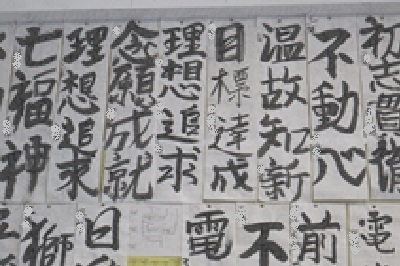 初志貫徹
不動心
温故知新
目標達成
理想追求
念願成就
理想追求
七福神
電
前
不
電
日
獅